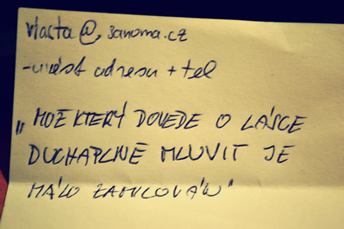 vlasta@sanoma.cz
-uvést adresu + tel
„MUŽ KTERÝ DOVEDE O LÁSCE
DUCHAPLNĚ MLUVIT JE
MÁLO ZAMILOVÁN"